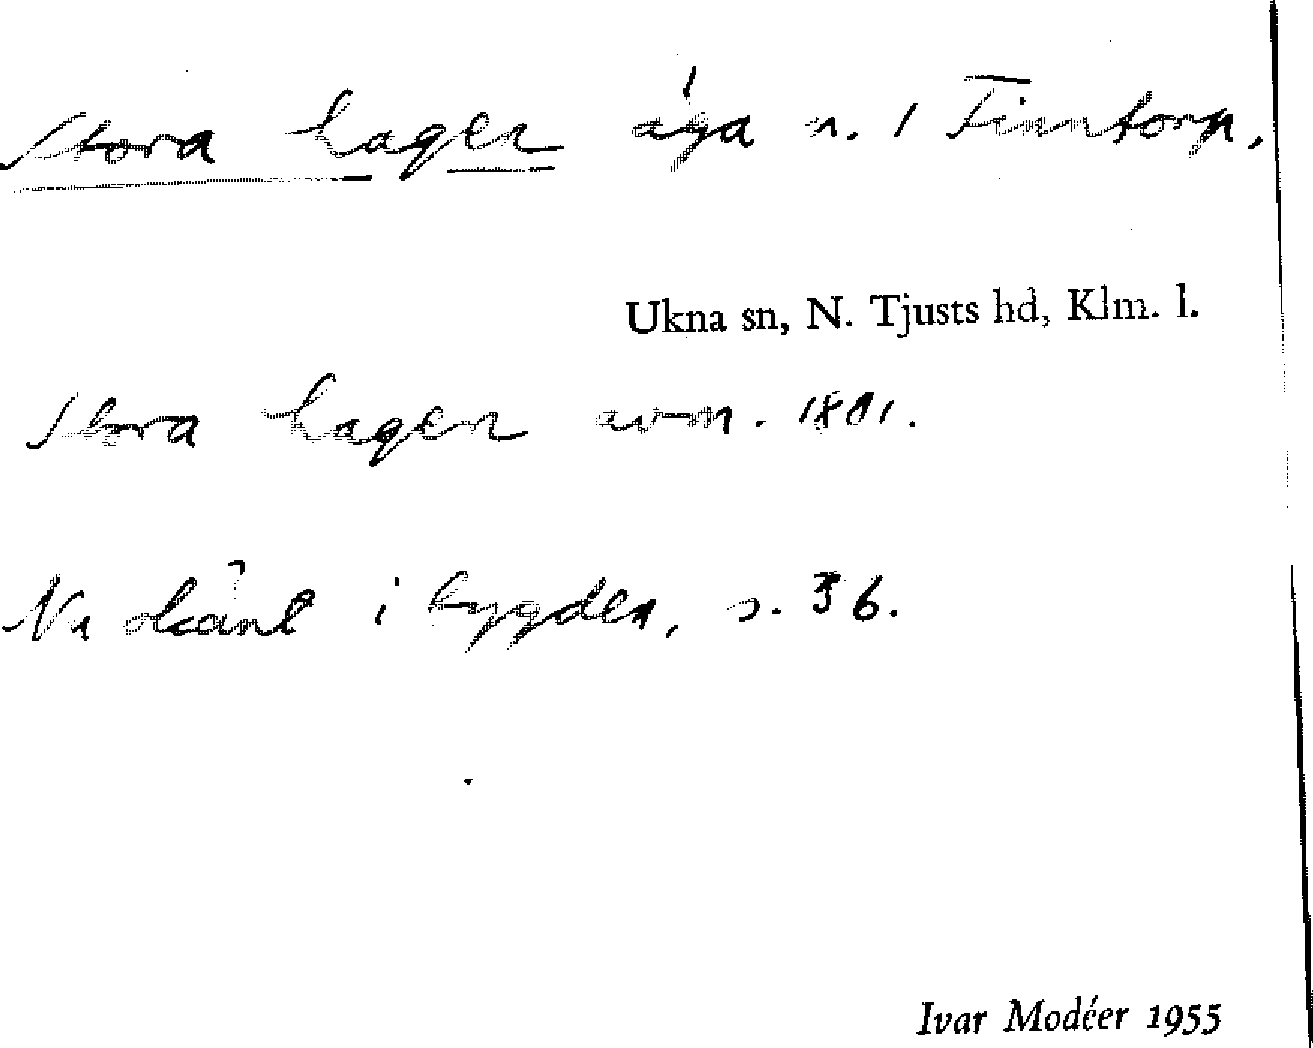 Stora hagen äga n. 1 Finntorp.
Ukna sn, N. Tjusts hd, Klm. l.
Stora hagen avm. 1801.
Nu okänt i bygden, s. 36.
Ivar Modéer 1955